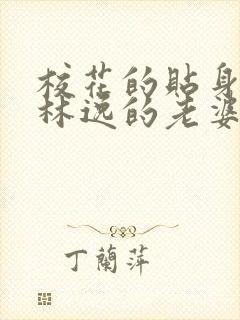 校花的貼身
林逸的老婆
丁蘭萍